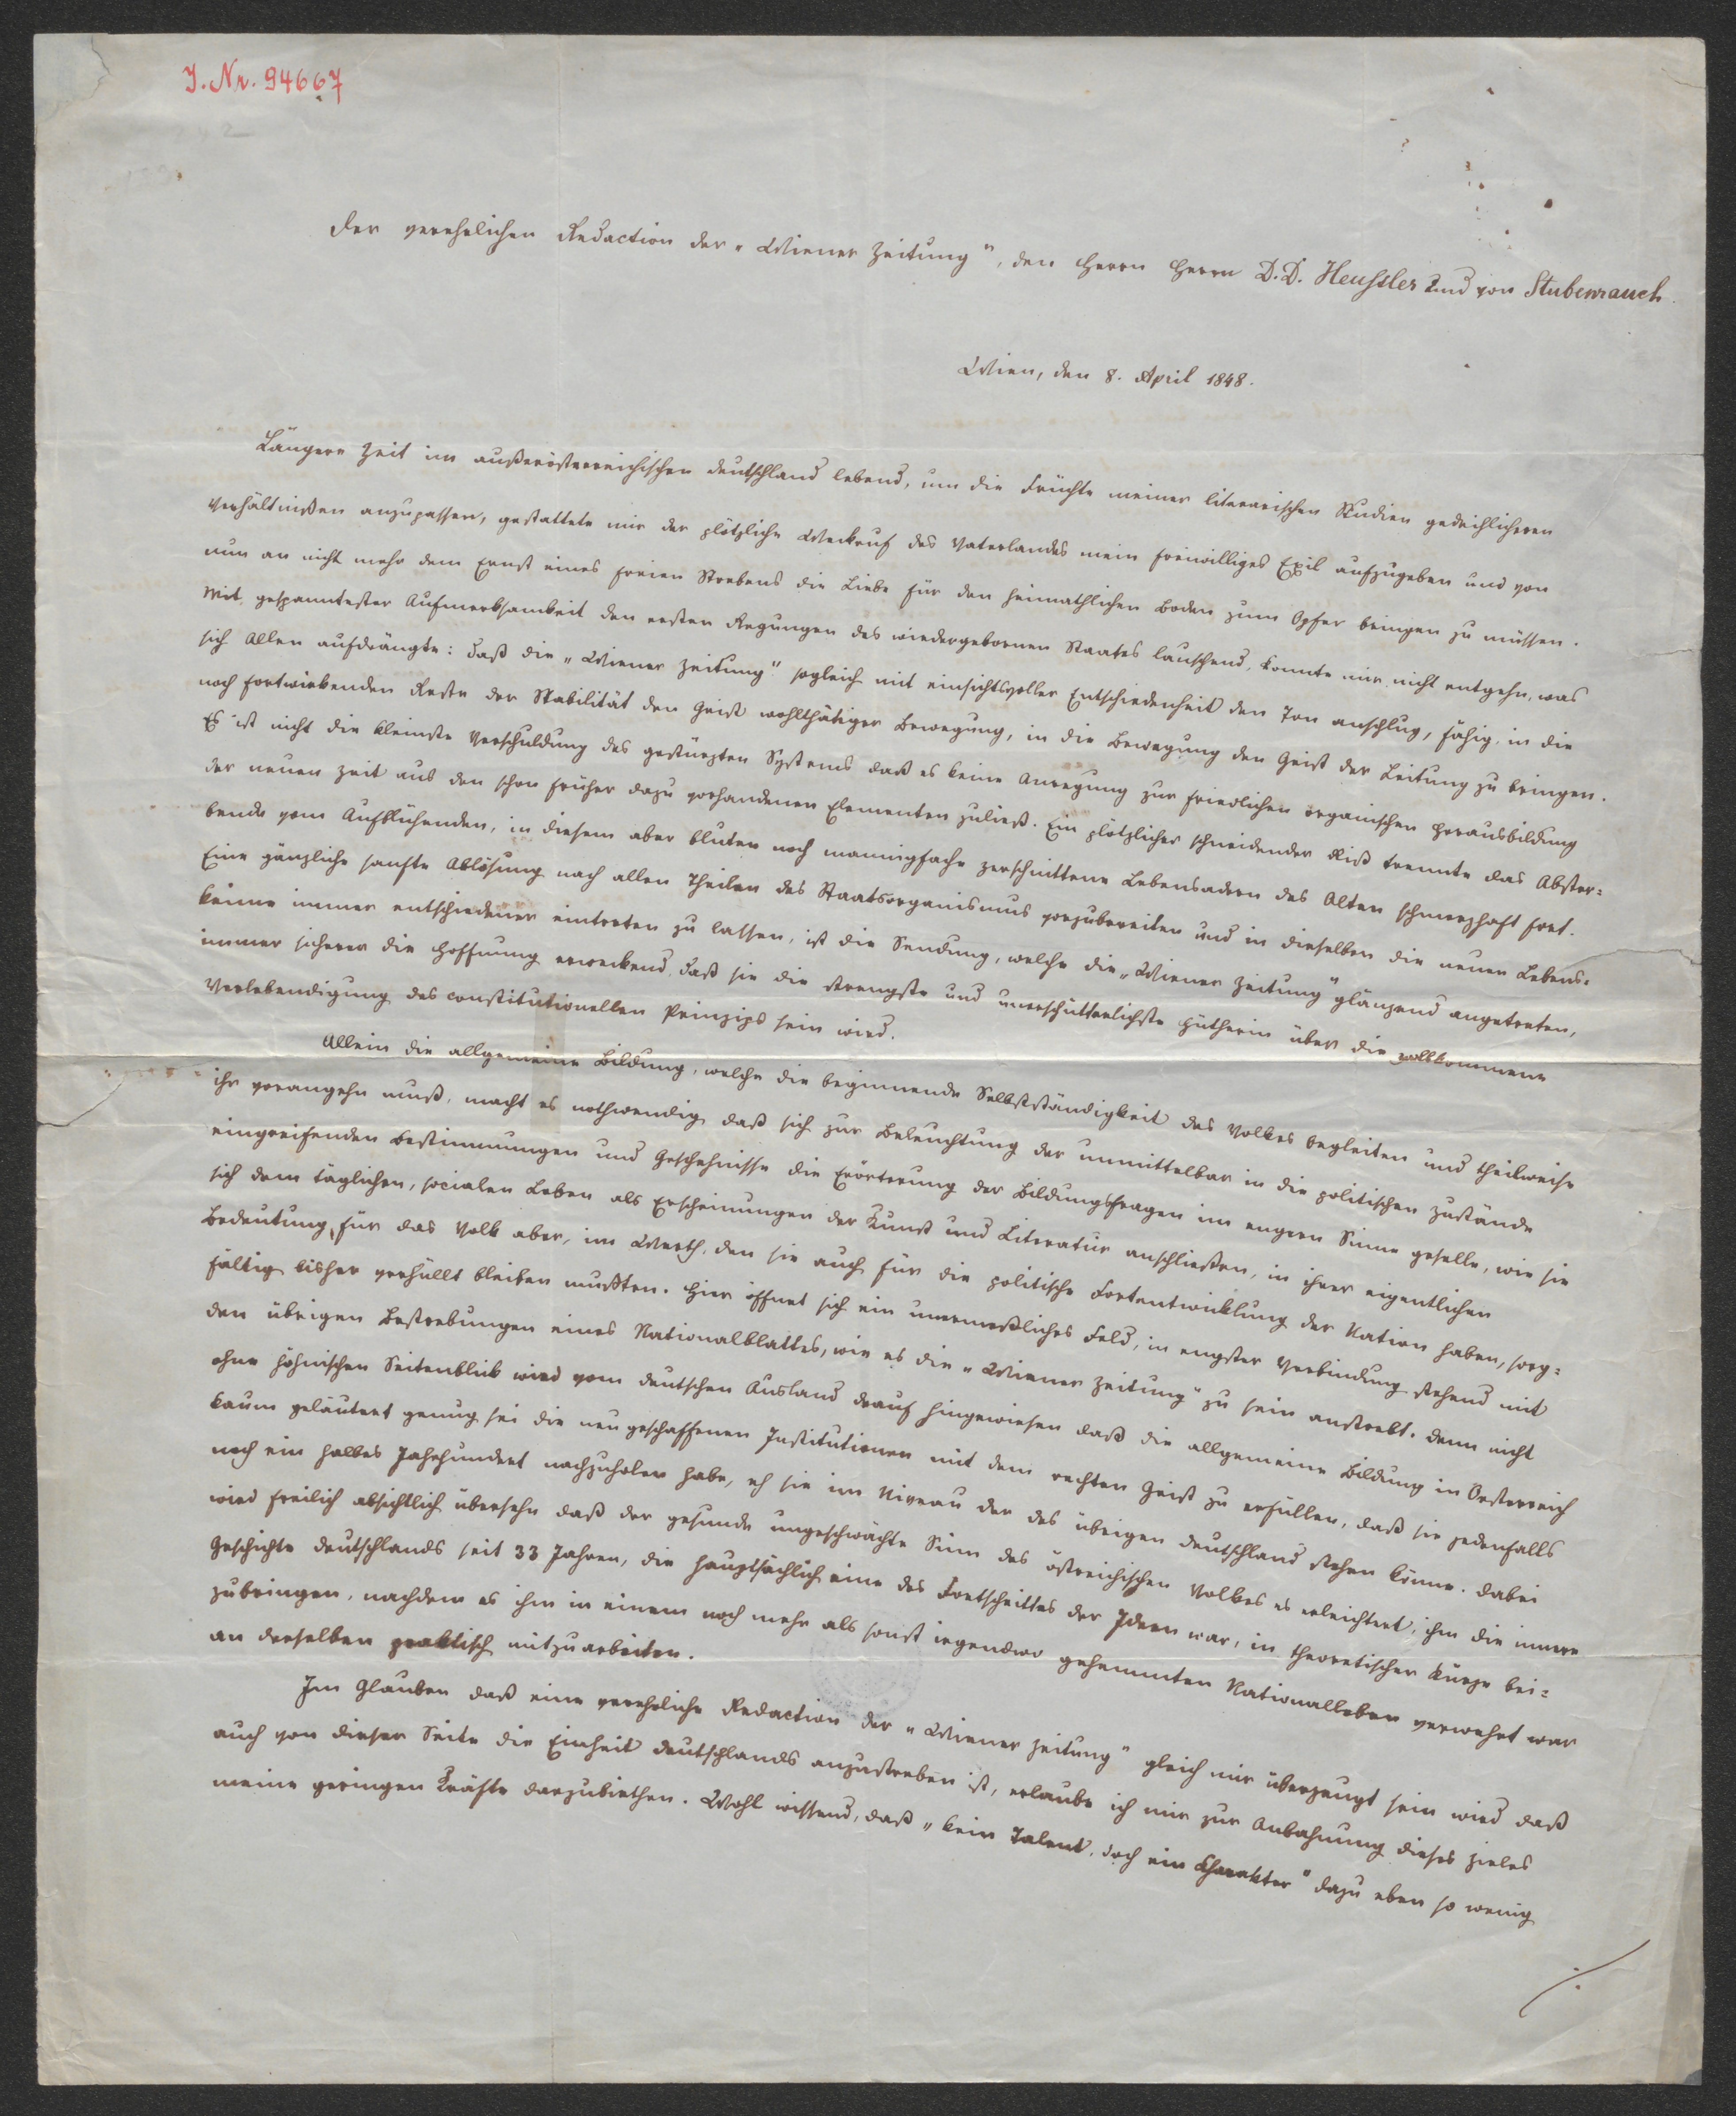 J. Nr. 94667
Der verehrlichen Redaction der „Wiener Zeitung", den Herrn Herrn D.D. Heußler und von Stubenrauch.
Wien, den 8. April 1848.
Längere Zeit im außerösterreichischen Deutschland lebend, um die Früchte meiner literarischen Studien gedeihlicheren
Verhältnißen anzupassen, gestattete mir der plötzliche Weckruf des Vaterlandes mein freiwilliges Exil aufzugeben und von
nun an nicht mehr dem Ernst eines freien Strebens die Liebe für den heimathlichen Boden zum Opfer bringen zu müssen.
Mit gespanntester Aufmerksamkeit den ersten Regungen des wiedergebornen Staates lauschend, konnte mir nicht entgehn, was
sich Allen aufdrängte: daß die „Wiener Zeitung" sogleich mit einsichtsvoller Entschiedenheit den Ton anschlug, fähig, in die
noch fortwirkenden Reste der Stabilität den Geist wohlthätiger Bewegung, in die Bewegung den Geist der Leitung zu bringen.
Es ist nicht die kleinste Verschuldung des gestürzten Systems daß es keine Anregung zur friedlichen organischen Herausbildung
der neuen Zeit aus den schon früher dazu vorhandenen Elementen zuließ. Ein plötzlicher schneidender Riß trennte das Abster=
bende vom Aufblühenden, in diesem aber bluten noch mannigfache zerschnittene Lebensadern des Alten schmerzhaft fort.
Eine gänzliche sanfte Ablösung nach allen Theilen des Staatsorganismus vorzubereiten und in dieselben die neuen Lebens=
keime immer entschiedener eintreten zu lassen, ist die Sendung, welche die „Wiener Zeitung" glänzend angetreten,
immer sicherer die Hoffnung erweckend, daß sie die strengste und unerschütterlichste Hütherin über die vollkommene
Verlebendigung des constitutionellen Prinzips sein wird.
Allein die allgemeine Bildung, welche die beginnende Selbstständigkeit des Volkes begleiten und theilweise
ihr vorangehn muß, macht es nothwendig daß sich zur Beleuchtung der unmittelbar in die politischen Zustände
eingreifenden Bestimmungen und Geschehnisse die Erörterung der Bildungsfragen im engern Sinne geselle, wie sie
sich dem täglichen, socialen Leben als Erscheinungen der Kunst und Literatur anschließen, in ihrer eigentlichen
Bedeutung für das Volk aber, im Werth, den sie auch für die politische Fortentwicklung der Nation haben, sorg=
fältig bisher verhüllt bleiben mußten. Hier öffnet sich ein unermeßliches Feld, in engster Verbindung stehend mit
den übrigen Bestrebungen eines Nationalblattes, wie es die „Wiener Zeitung" zu sein anstrebt. Denn nicht
ohne höhnischen Seitenblick wird vom deutschen Ausland drauf hingewiesen daß die allgemeine Bildung in Oesterreich
kaum geläutert genug sei die neugeschaffenen Institutionen mit dem rechten Geist zu erfüllen, daß sie jedenfalls
noch ein halbes Jahrhundert nachzuholen habe, eh sie im Niveau der des übrigen Deutschland stehen könne. Dabei
wird freilich absichtlich übersehn daß der gesunde ungeschwächte Sinn des östreichischen Volkes es erleichtert, ihm die innere
Geschichte Deutschlands seit 33 Jahren, die hauptsächlich eine des Fortschrittes der Ideen war, in theoretischer Kürze bei=
zubringen, nachdem es ihm in einem noch mehr als sonst irgendwo gehemmten Nationalleben verwehrt war
an derselben praktisch mitzuarbeiten.
Im Glauben daß eine verehrliche Redaction der „Wiener Zeitung" gleich mir überzeugt sein wird daß
auch von dieser Seite die Einheit Deutschlands anzustreben ist, erlaube ich mir zur Anbahnung dieses Zieles
meine geringen Kräfte darzubiethen. Wohl wissend, daß „kein Talent, doch ein Charakter" dazu eben so wenig
./.